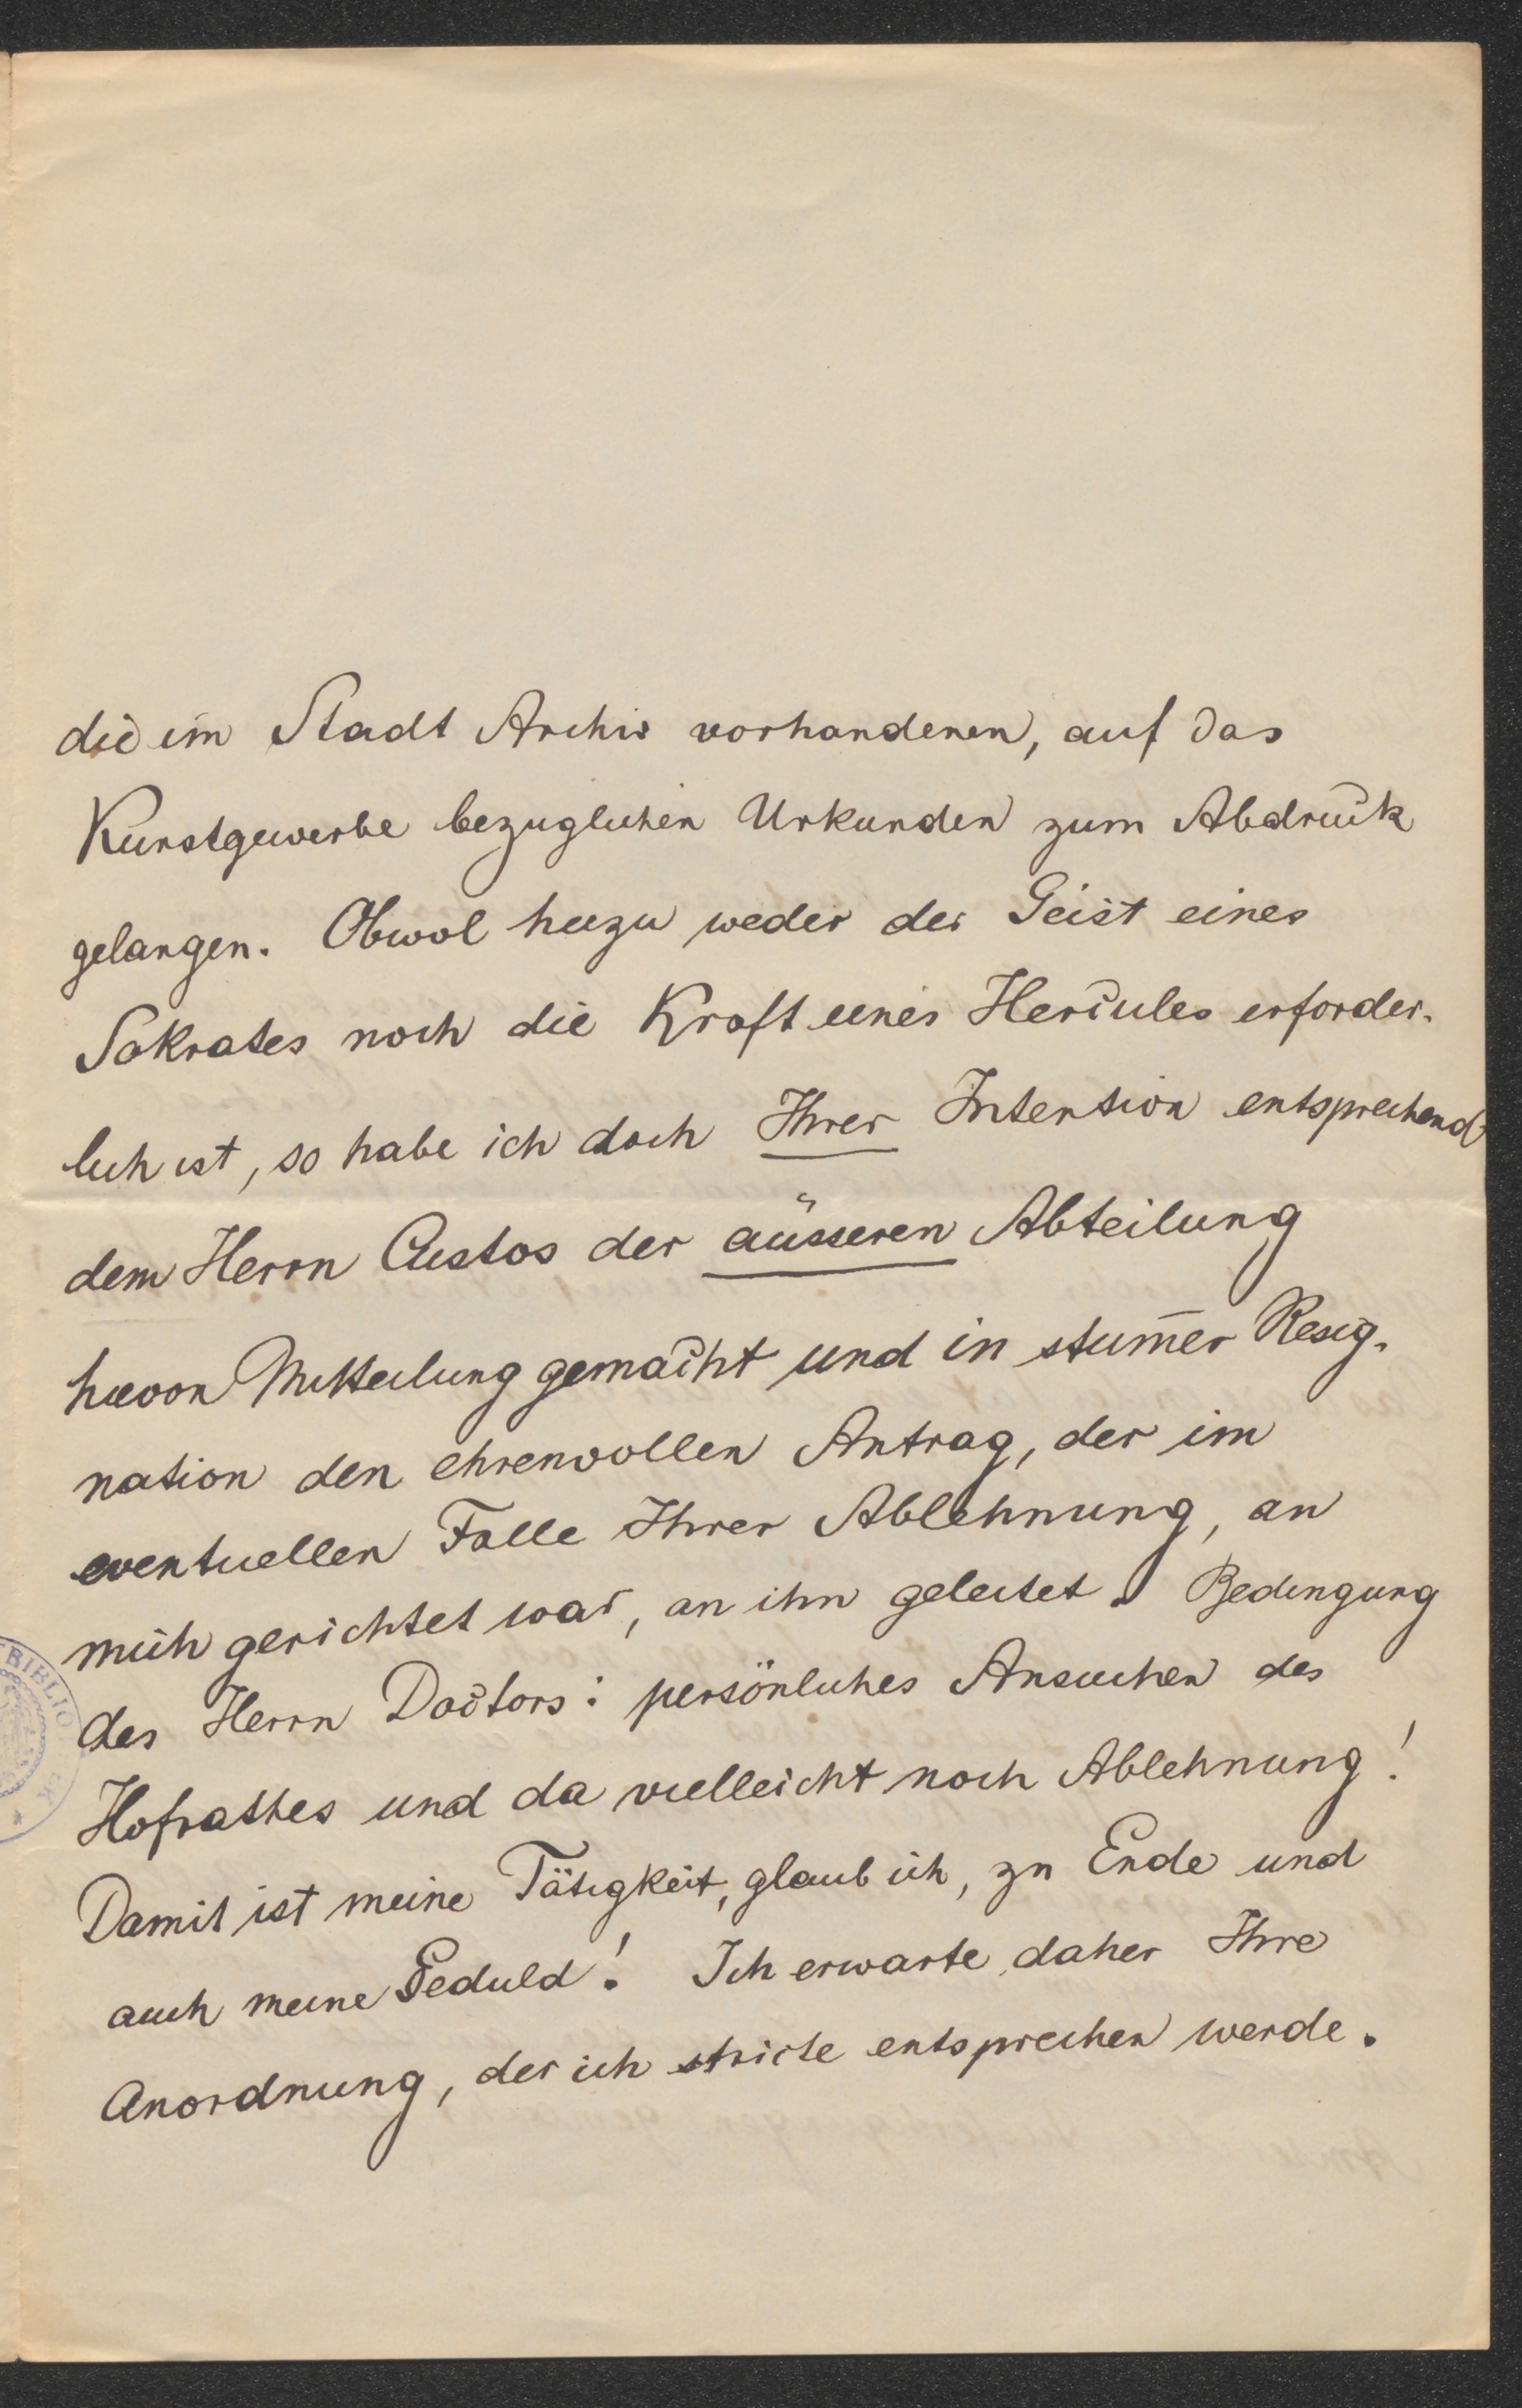 die im Stadt Archiv vorhandenen, auf das
Kunstgewerbe bezüglichen Urkunden zum Abdruck
gelangen. Obwol hiezu weder der Geist eines
Sokrates noch die Kraft eines Hercules erforder-
lich ist, so habe ich doch Ihrer Intention entsprechend
dem Herrn Custos der äusseren Abteilung
hievon Mitteilung gemacht und in stum̄er Resig-
nation den ehrenvollen Antrag, der im
eventuellen Falle Ihrer Ablehnung, an
mich gerichtet war, an ihn geleitet. Bedingung
des Herrn Doctors: persönliches Ansuchen des
Hofrathes und da vielleicht noch Ablehnung!
Damit ist meine Tätigkeit, glaub ich, zu Ende und
auch meine Geduld! Ich erwarte daher Ihre
Anordnung, der ich stricte entsprechen werde.
BIBLIO